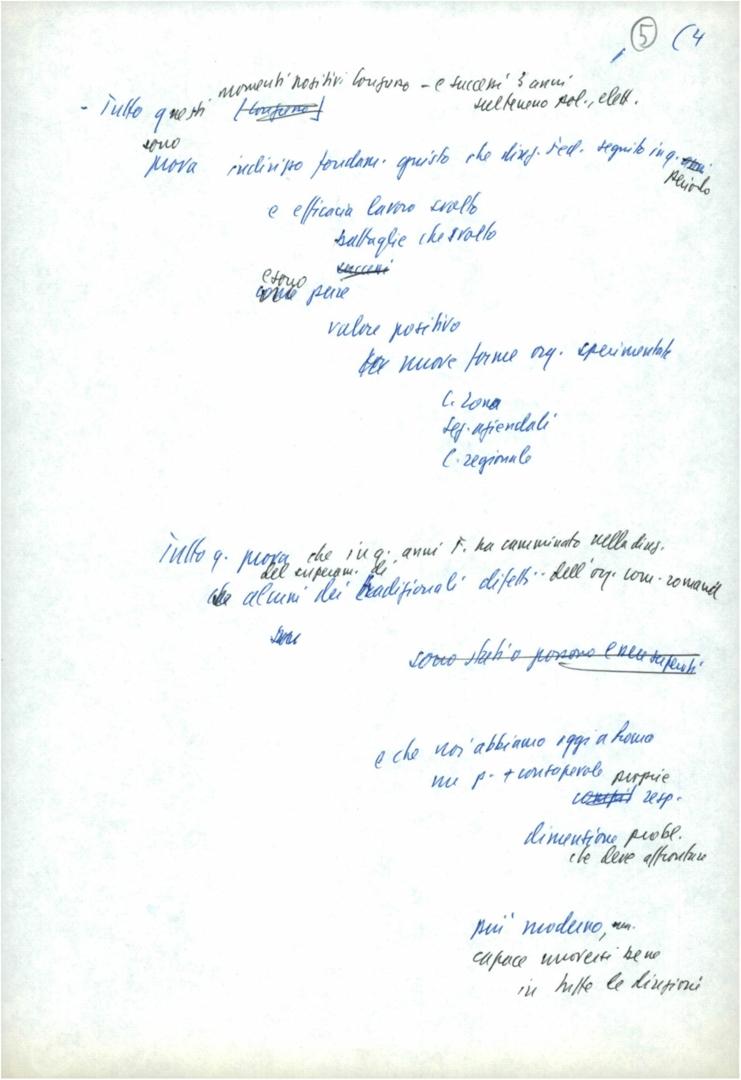 5 (4
momenti positivi Congresso - e successi 3 anni
- Tutto questi [Congresso] sul terreno pol., elett.
sono
prova indirizzo fondam. giusto che direz. Fed. seguito in q. anni
periodo
e efficacia lavoro svolto
battaglie che svolto
successi
e sono
come pure
valore positivo
nuove forme org. sperimentate
C. Zona
Sez. aziendali
C. regionale
Tutto q. prova che in q. anni F. ha camminato nella direz.
del superam. di
che alcuni dei tradizionali difetti dell'org. com. romana
sono
sono stati o possono essere superati
e che noi abbiamo oggi a Roma
un p. + consapevole proprie
compiti resp.
dimensione probl.
che deve affrontare
più moderno,
capace muoversi bene
in tutte le direzioni